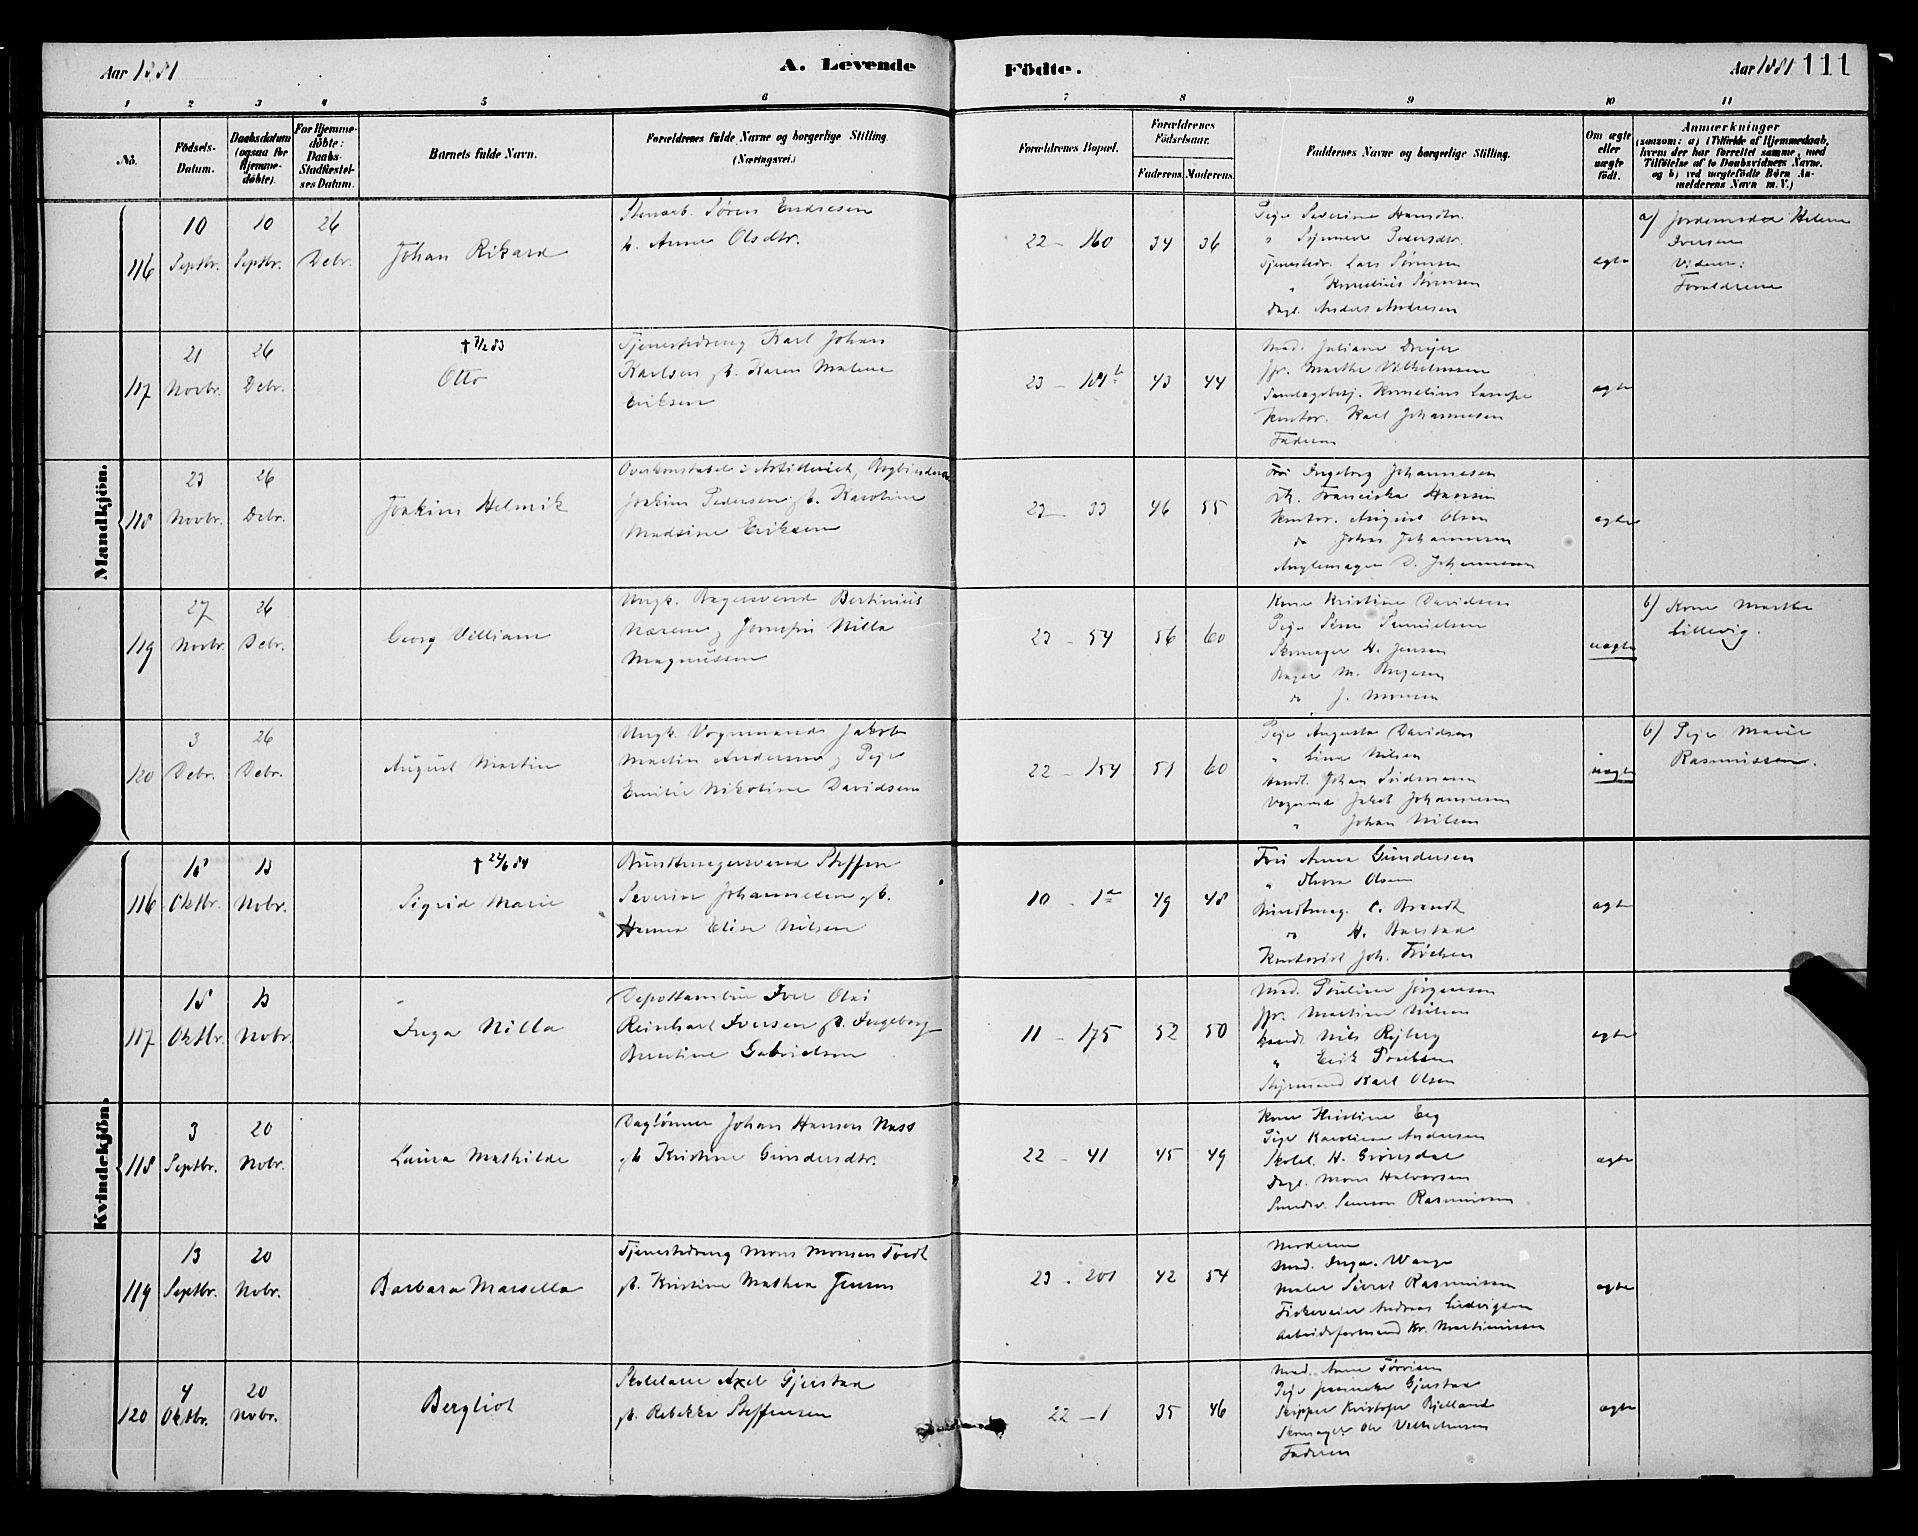 Aar 1881
A. Levende
Födte.
Aar 1881
111
1 2 3 4 5 6 7 8 9 10 11
No.
Födsels-Datum.
Daabsdatum (ogsaa for Hjemme-döbte).
For Hjemme-döbte: Daabs-Stadfæstel-ses Datum.
Barnets fulde Navn.
Forældrenes fulde Navne og borgerlige Stilling. (Næringsvei.)
Forældrenes Bopæl.
Forældrenes Födselsaar.
Faderens. Moderens.
Faddernes Navne og borgerlige Stilling.
Om ægte eller uægte födt.
Anmærkninger
(saasom: a) i Tilfælde af Hjemmedaab, hvem der har forrettet samme, med Tilföielse af to Daabsvidners Navne, og b) ved uægtefödte Börn An-melderens Navn m. V.)
Mandkjön.
116
10 Septbr.
10 Septbr.
26 Debr.
Johan Rikard
Stenarb. Sören Endresen
f. Anne Olsdtr.
22 - 160
34 36
Pige Severine Hansdtr.
" Pedersdtr.
Tjenestedr. Lars Sörensen
" Kornelius Sörensen
Dagl. Anders Andresen
ægte
a) Jordemoder Helene
Iversen
Vidner:
Forældrene
117
21 Novbr.
26 Debr.
† 7/2 83
Otto
Tjenestedreng Karl Johan
Karlsen f. Karen Malene
Eriksen
23 - 181 b
43 44
Mad. Juliane Dreyer
Jfr. Marthe Vilhelmsen
Kornelius
Kontor. Karl Johannesen
Faderen
ægte
118
23 Novbr.
26 Debr.
Joakim Helmik
Overkonstabel i Artilleriet, Bogbinder
Joakim Pedersen f. Karoline
Madsine Eriksen
23 - 33
46 55
Fru Ingeborg Johannesen
Frk. Franciska Hansen
Kontor. August Olsen
do Johan Johannesen
D. Johannesen
ægte
119
27 Novbr.
26 Debr.
Georg Villiam
Ungk. Bagersvend Bertinius
Næren og Jomfru Nilla
Magnussen
23 - 54
56 60
Kone Kristine Davidsen
Pige
Skomager H. Jensen
Bager M. Birgesen
do J. Monsen
uægte
b) Kone Marthe
Lillevig.
120
3 Debr.
26 Debr.
August Martin
Ungk. Vognmand Jakob
Martin Andersen og Pige
Emilie Nikoline Davidsen
22 - 154
51 60
Pige Augusta Davidsen
" Line Nilsen
Handl. Johan
Vognmd Jakob Johannesen
" Johan Nilsen
uægte
b) Pige Marie
Rasmussen.
Kvindekjön.
116
18 Oktbr.
13 Nobr.
† 24/6 84
Sigrid Marie
Bundtmagersvend Steffen
Severin Johannesen f.
Hanna Elise Nilsen
10 - 1 a
49 48
Fru Anna Gundersen
" Thora Olsen
Bundtmag. C. Brandt
do H. Barstad
Kontorist Joh.
ægte
117
18 Oktbr.
13 Nobr.
Inga Nilla
Iver Olai
Reinhart Iversen f. Ingeborg
Berntine Gabrielsen
11 - 175
52 50
Mad. Pouline Jörgensen
Jfr. Martine Nilsen
Handl. Nils Ryberg
" Erik Poulsen
Styrmand Karl Olsen
ægte
118
3 Septbr.
20 Nobr.
Laura Mathilde
Daglönner Johan Hansen Næss
f. Kristine Gundersdtr.
22 - 41
45 49
Kone Kristine Eeg
Pige Karoline Andersen
Skolel. H. Grönsdal
Dagl. Mons Halvorsen
Samson Rasmussen
ægte
119
13 Septbr.
20 Nobr.
Barbara Marsella
Tjenestedreng Mons Monsen Tvedt
f. Kristine Mathea Jensen
23 - 201
42 54
Moderen
Mad. Inga Waage
Maler Sivert Rasmussen
Fiskeveier Andreas Ludvigsen
Arbeidsformand Kr. Martinussen
ægte
120
4 Oktbr.
20 Nobr.
Bergliot
Skolelærer Axel Gjerstad
f. Rebekka Steffensen
22 - 1
35 46
Mad. Anne
Pige Gjerstad
Skipper Kristofer Bjelland
Skomager Ole Vilhelmsen
Faderen
ægte